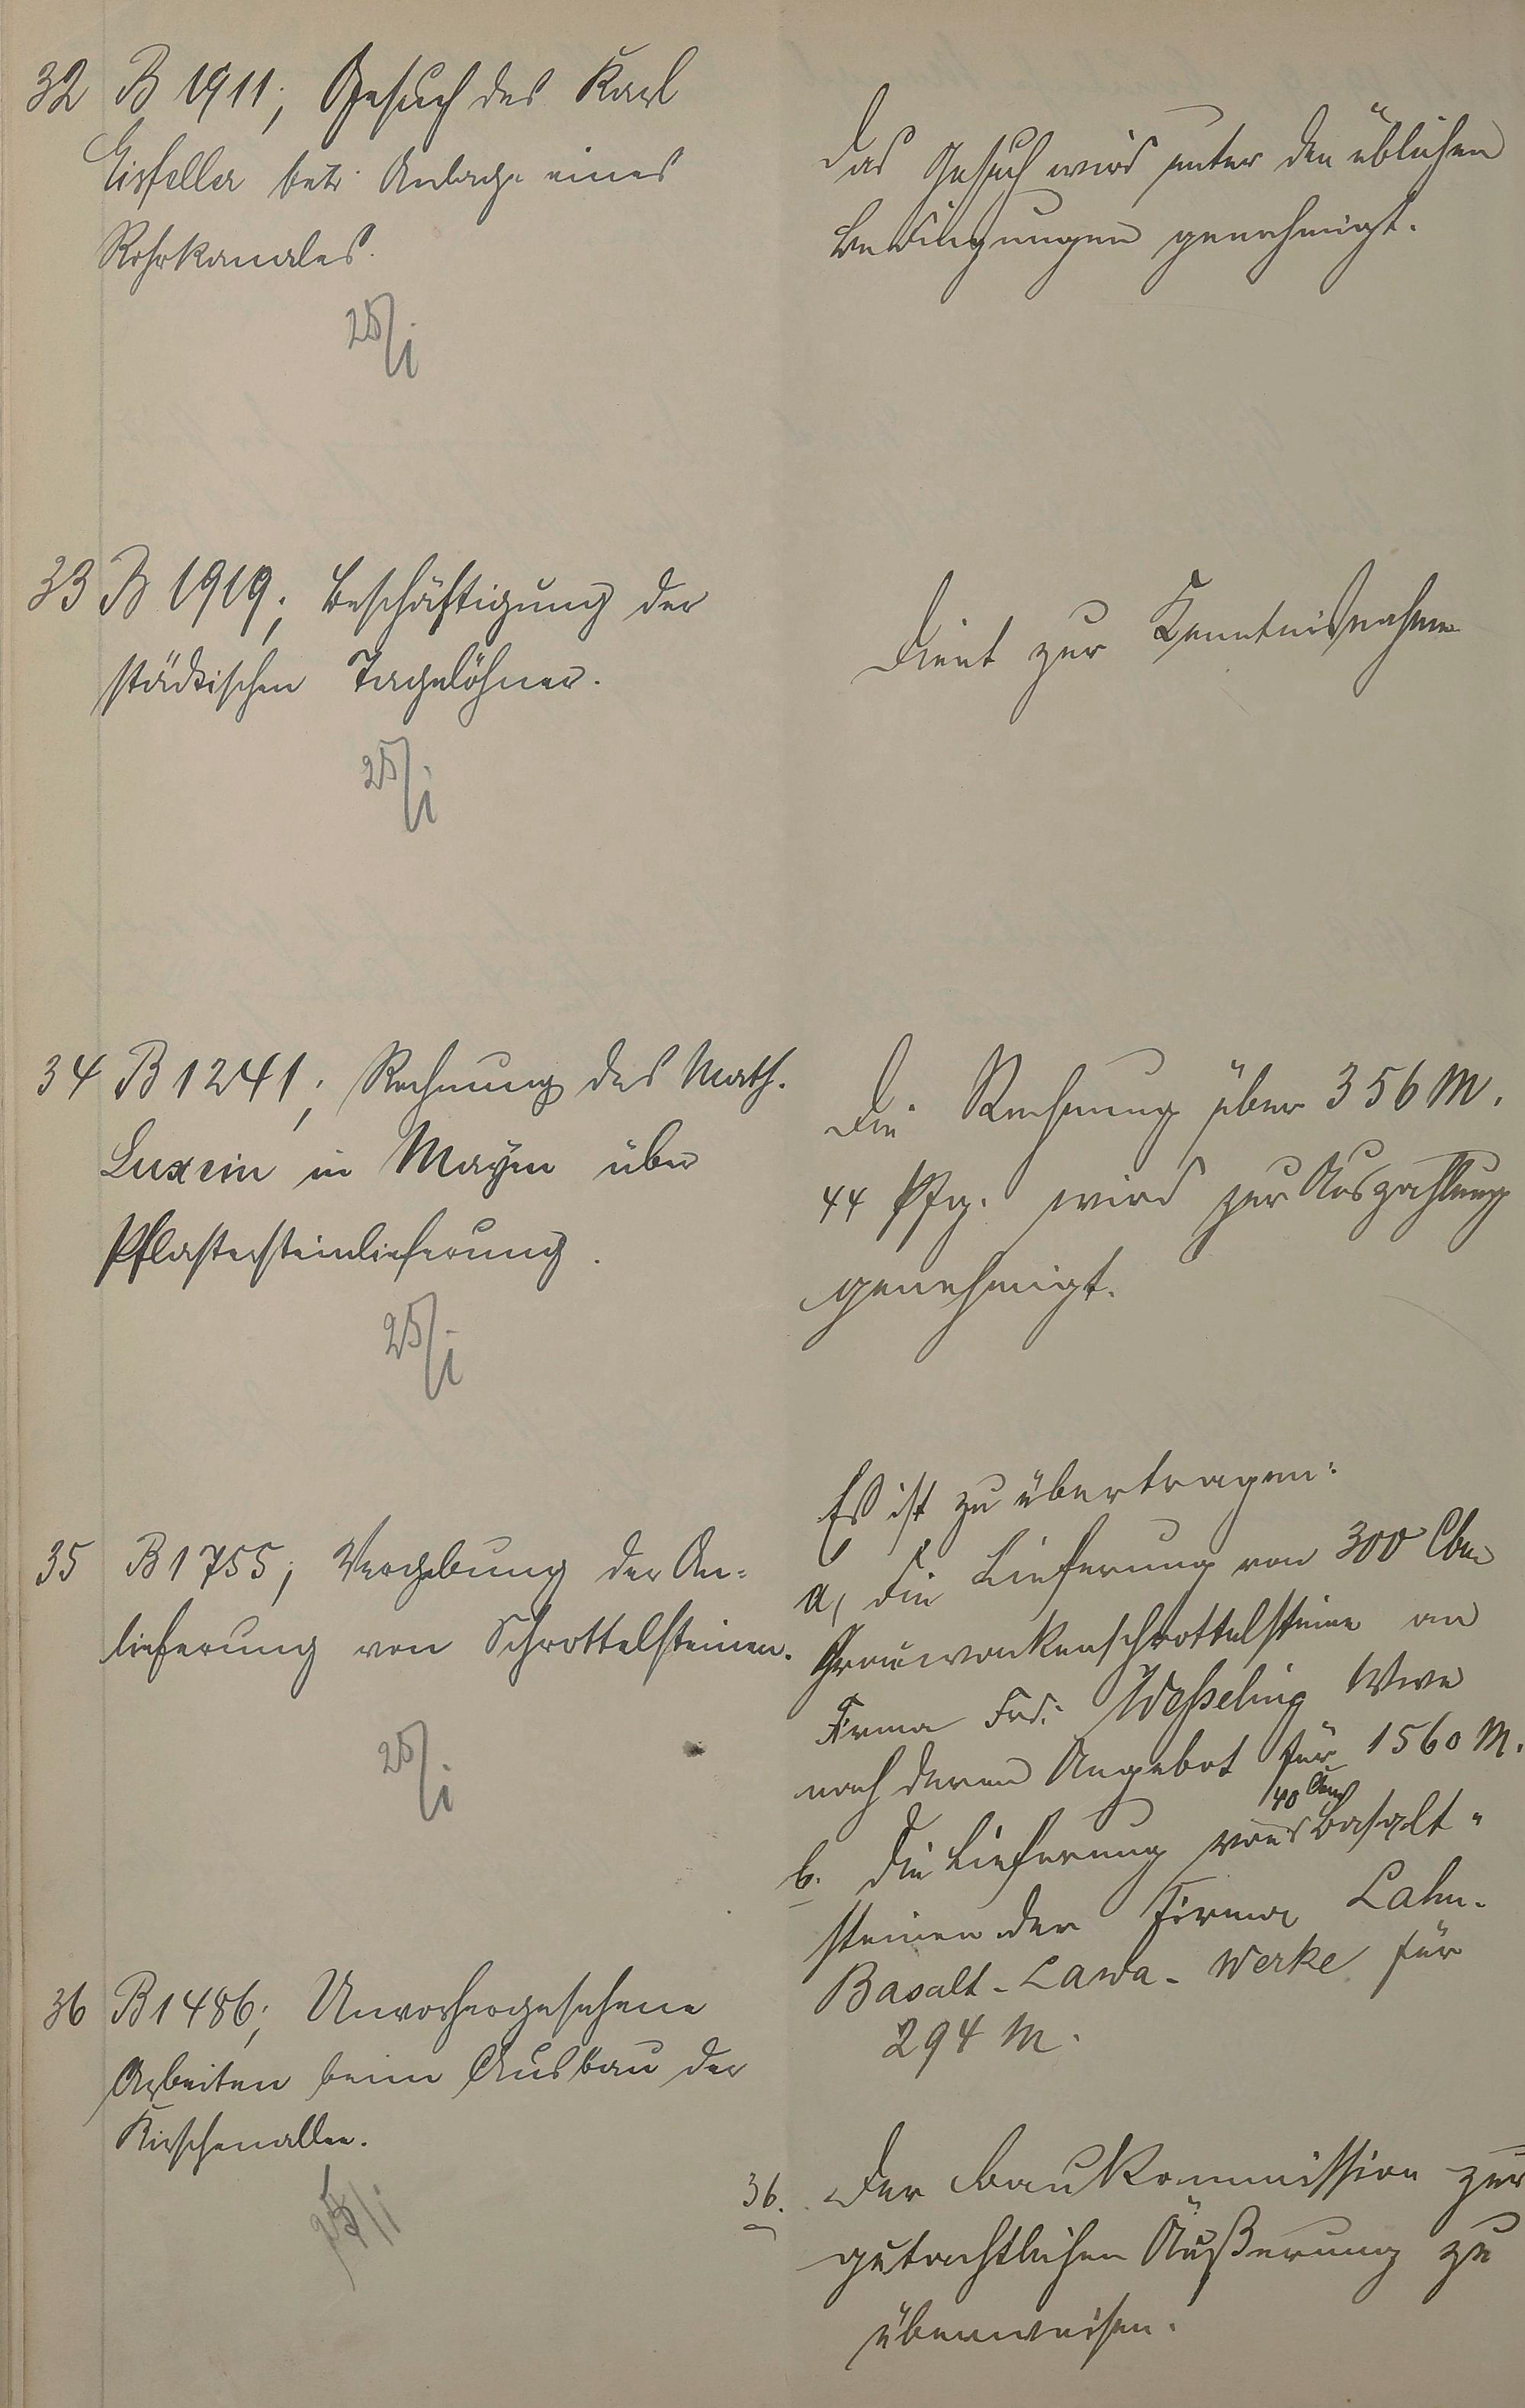 32 B 1911; Gesuch des Karl
Eisfeller betr. Anlage eines
Rohrkanales.
25/I
Das Gesuch wird unter den üblichen
Bedingungen genehmigt.
33 B 1919; Beschäftigung der
städtischen Tagelöhner.
25/I
Dient zur Kenntnisnahme
34 B 1241; Rechnung des Math.
Luxem in Mayen über
Pflastersteinlieferung.
25/I
Die Rechnung über 356 M.
44 Pfg. wird zur Auszahlung
genehmigt.
35 B 1755; Vergebung der An=
lieferung von Schrottelsteinen.
25/I
Es ist zu übertragen:
a, die Lieferung von 300 Cbm
Grauwackenschrottelsteine an
Firma Frd. Weßeling Wwe
nach deren Angebot für 1560 M.
b. die Lieferung von 40 Cbm Basalt=
steinen der Firma Lahn-
Basalt-Lawa-Werke für
294 M.
36 B 1486; Unvorhergesehene
Arbeiten beim Ausbau der
Kirschenallee.
25/I
36. Der Baukommission zur
gutachtlichen Äußerung zu
überweisen.